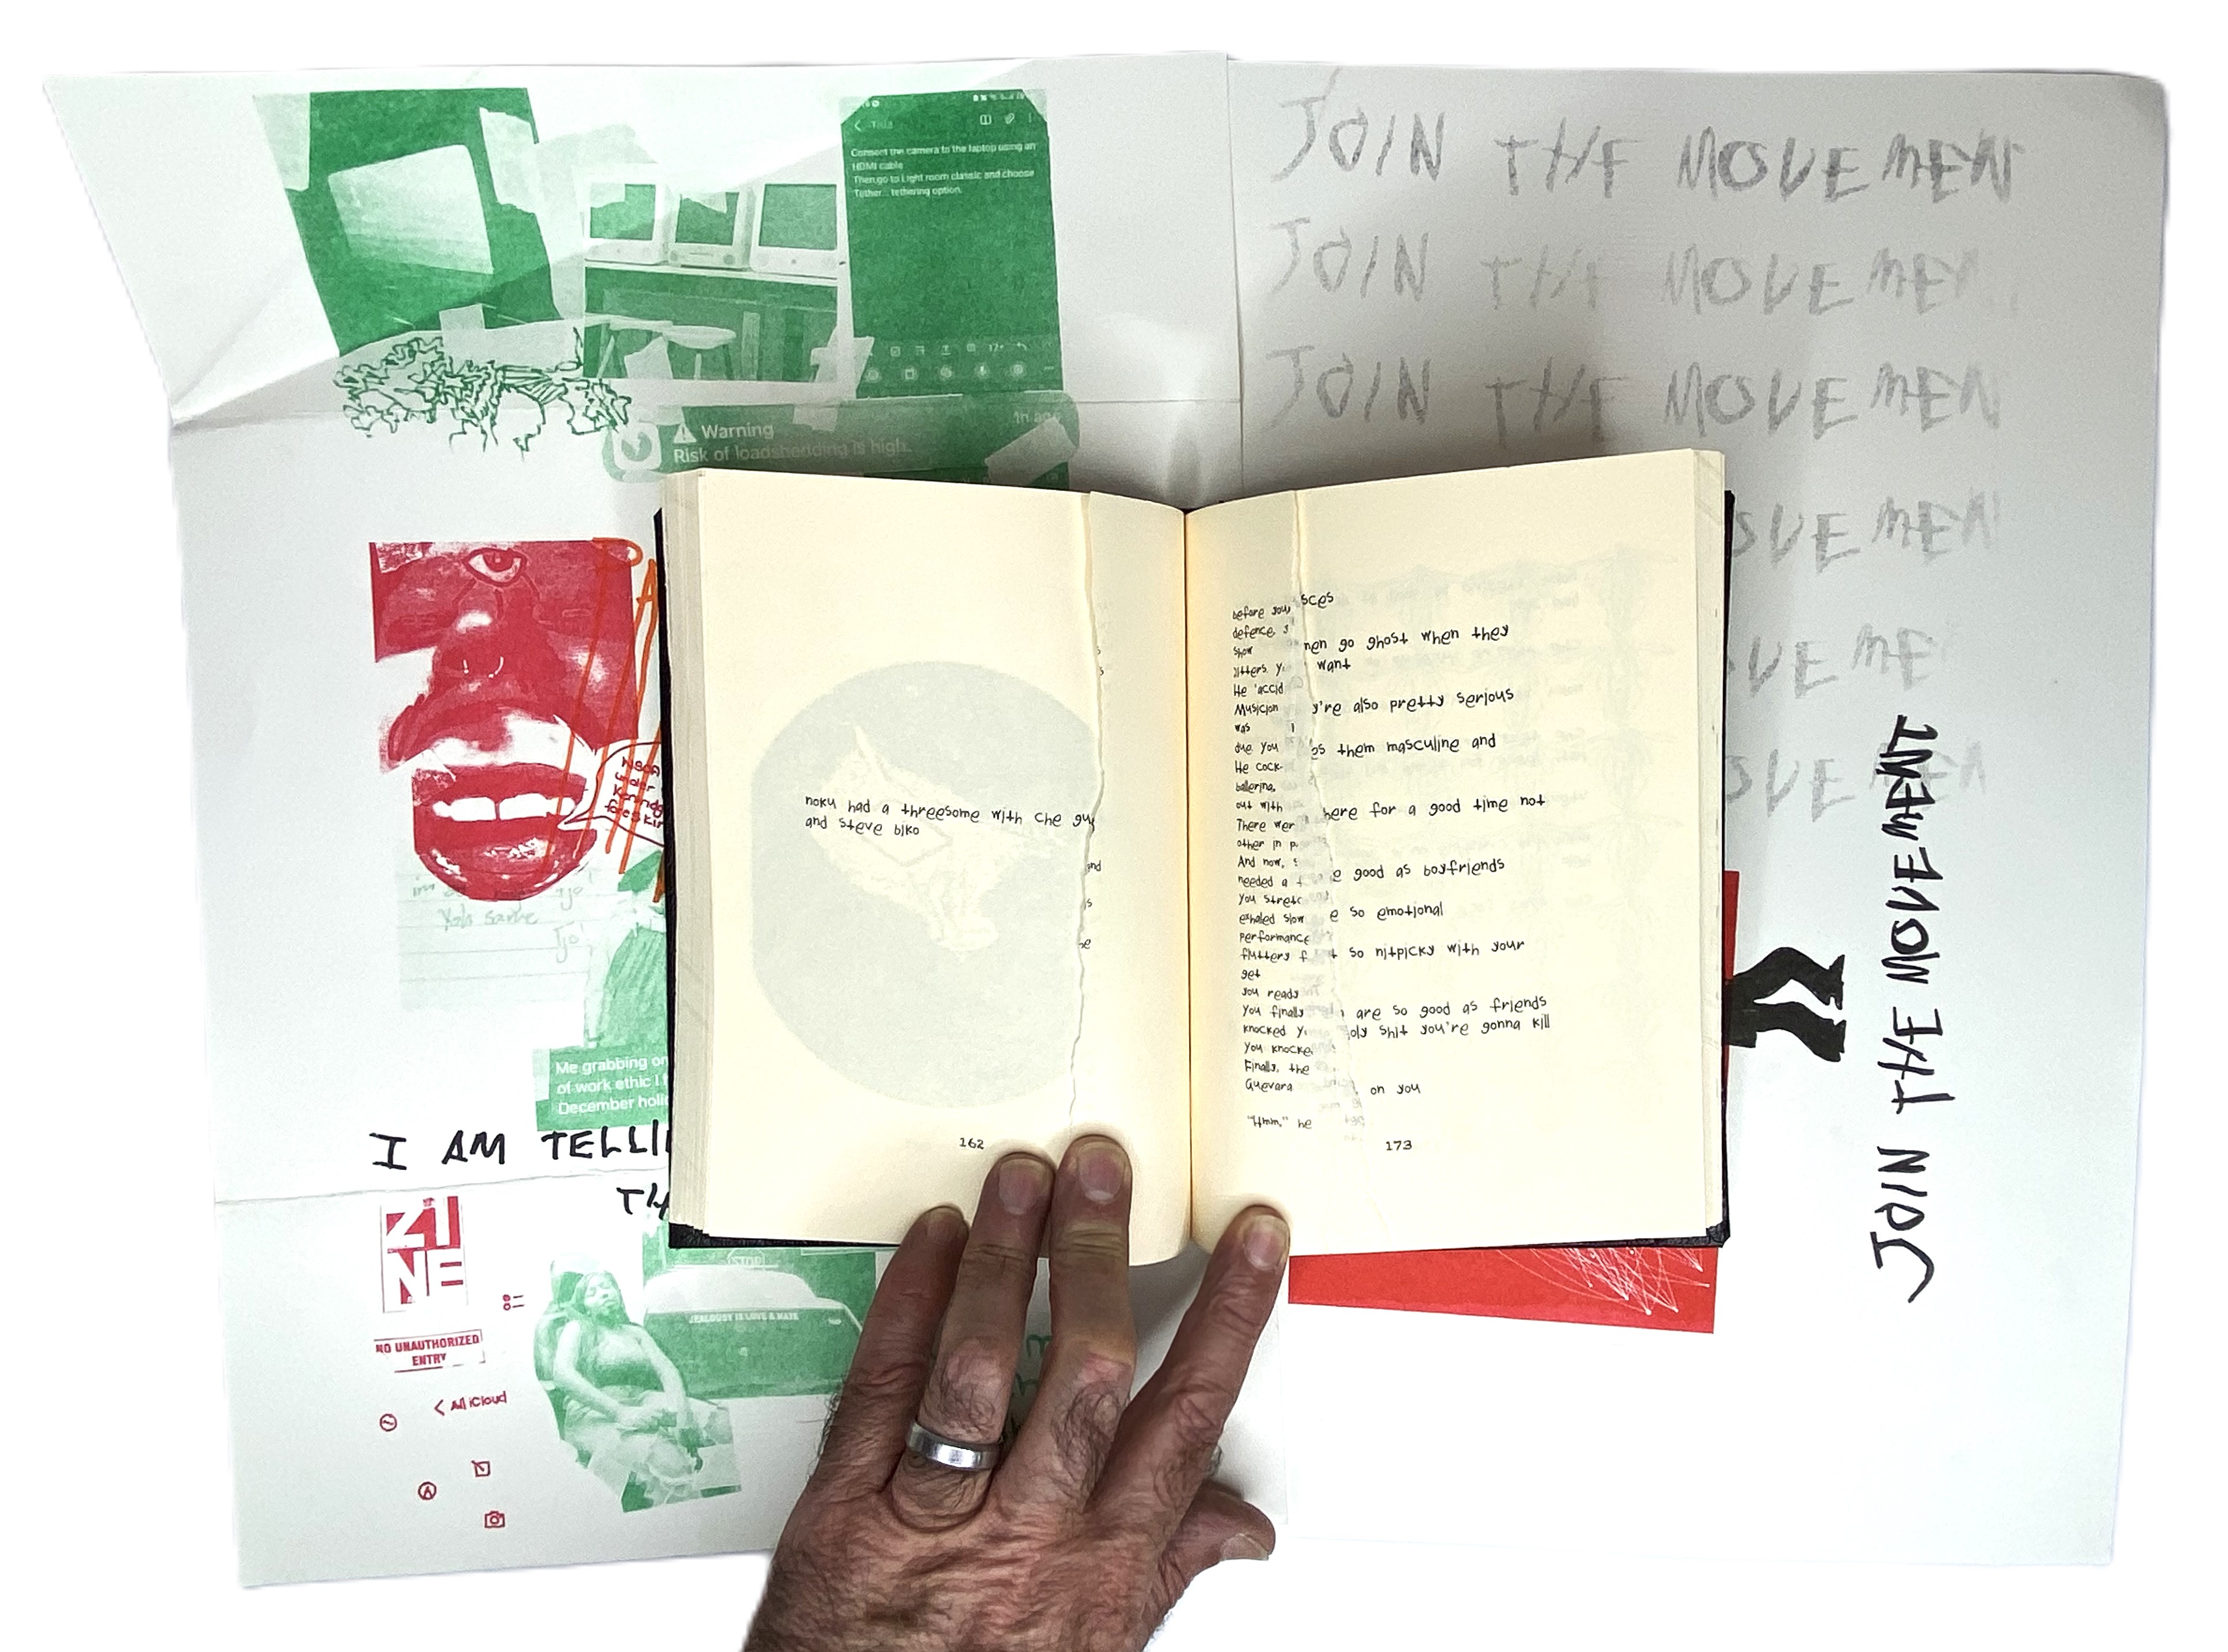 JOIN THE MOVEMEN
JOIN THE MOVEMEN
JOIN THE MOVEMEN
OVEMEN
OVEME
OVEMEN
JOIN THE MOVEMENT
Connect the camera to the laptop using an
HDMI cable
Then go to Light room classic and choose
Tether... tethering option.
Warning
1h ago
Risk of loadshedding is high.
Me grabbing on
of work ethic I
December holi
I AM TELLI
TH
ZI
NE
NO UNAUTHORIZED
ENTRY
All iCloud
STOP
JEALOUSY IS LOVE & HATE
noku had a threesome with che gu
and steve biko
nd
s
he
162
sces
men go ghost when they
want
y're also pretty serious
es them masculine and
here for a good time not
e good as boyfriends
e so emotional
t so nitpicky with your
are so good as friends
oly shit you're gonna kill
on you
before you
defence
show
jitters. y
He 'accid
Musician
was
due you
He cock-
ballerina,
out with
There wer
other in p
And now, s
needed a
you stretc
exhaled slow
performance
fluttery f
get
you ready
You finally
knocked y
You knocke
Finally, the
Guevara
"Hmm," he
173